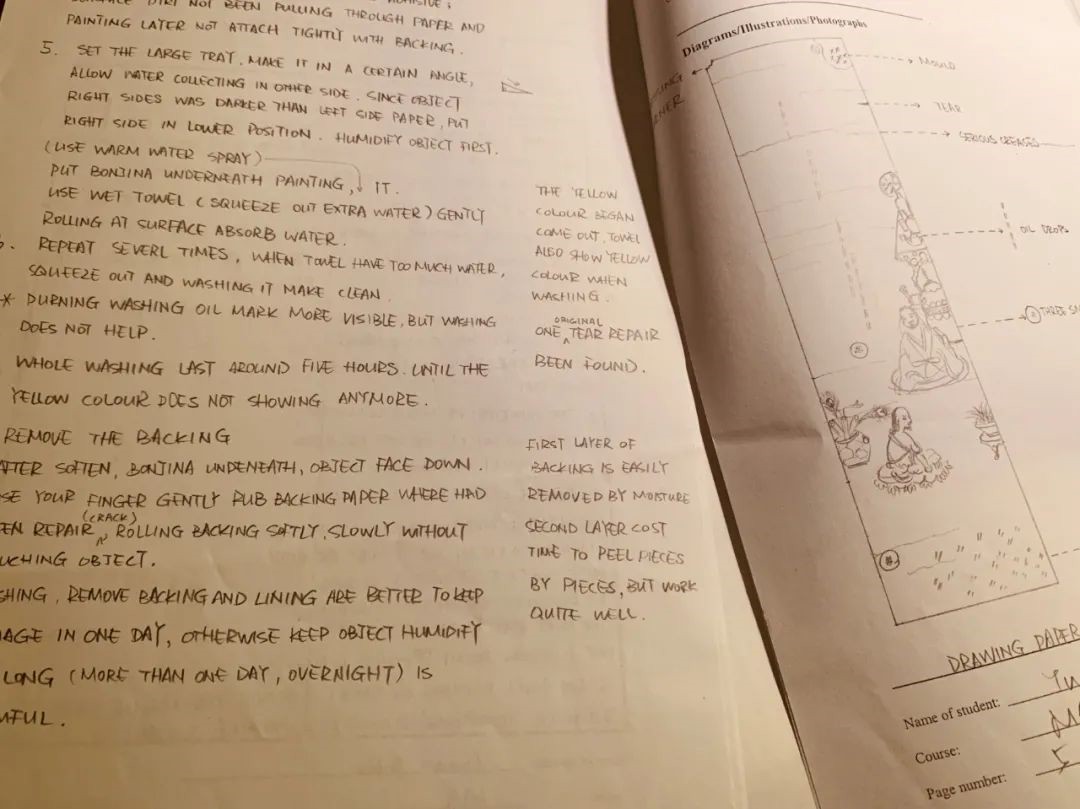 NOT BEEN PULLING THROUGH PAPER AND
PAINTING LATER NOT ATTACH TIGHTLY WITH BACKING.
5. SET THE LARGE TRAY. MAKE IT IN A CERTAIN ANGLE,
ALLOW WATER COLLECTING IN OTHER SIDE. SINCE OBJECT
RIGHT SIDES WAS DARKER THAN LEFT SIDE PAPER, PUT
RIGHT SIDE IN LOWER POSITION. HUMIDIFY OBJECT FIRST.
(USE WARM WATER SPRAY)
PUT BONJINA UNDERNEATH PAINTING, IT.
USE WET TOWEL (SQUEEZE OUT EXTRA WATER) GENTLY
ROLLING AT SURFACE ABSORB WATER.
REPEAT SEVERL TIMES, WHEN TOWEL HAVE TOO MUCH WATER,
SQUEEZE OUT AND WASHING IT MAKE CLEAN.
* DURNING WASHING OIL MARK MORE VISIBLE, BUT WASHING
DOES NOT HELP.
WHOLE WASHING LAST AROUND FIVE HOURS. UNTIL THE
YELLOW COLOUR DOES NOT SHOWING ANYMORE.
REMOVE THE BACKING
AFTER SOFTEN, BONJINA UNDENEATH, OBJECT FACE DOWN.
SE YOUR FINGER GENTLY RUB BACKING PAPER WHERE HAD
EN REPAIR (CRACK), ROLLING BACKING SOFTLY, SLOWLY WITHOUT
UCHING OBJECT.
SHING, REMOVE BACKING AND LINING ARE BETTER TO KEEP
AGE IN ONE DAY, OTHERWISE KEEP OBJECT HUMIDIFY
LONG (MORE THAN ONE DAY, OVERNIGHT) IS
MFUL.
THE YELLOW
COLOUR BEGAN
COME OUT, TOWEL
ALSO SHOW YELLOW
COLOUR WHEN
WASHING.
ONE ORIGINAL TEAR REPAIR
BEEN FOUND.
FIRST LAYER OF
BACKING IS EASILY
REMOVED BY MOISTURE
SECOND LAYER COST
TIME TO PEEL PIECES
BY PIECES, BUT WORK
QUITE WELL.
Diagrams/Illustrations/Photographs
MOULD
TEAR
SERIOUS CREASES
OIL DROPS
THREE
DRAWING PAPER
Name of student:
Course:
Page number: